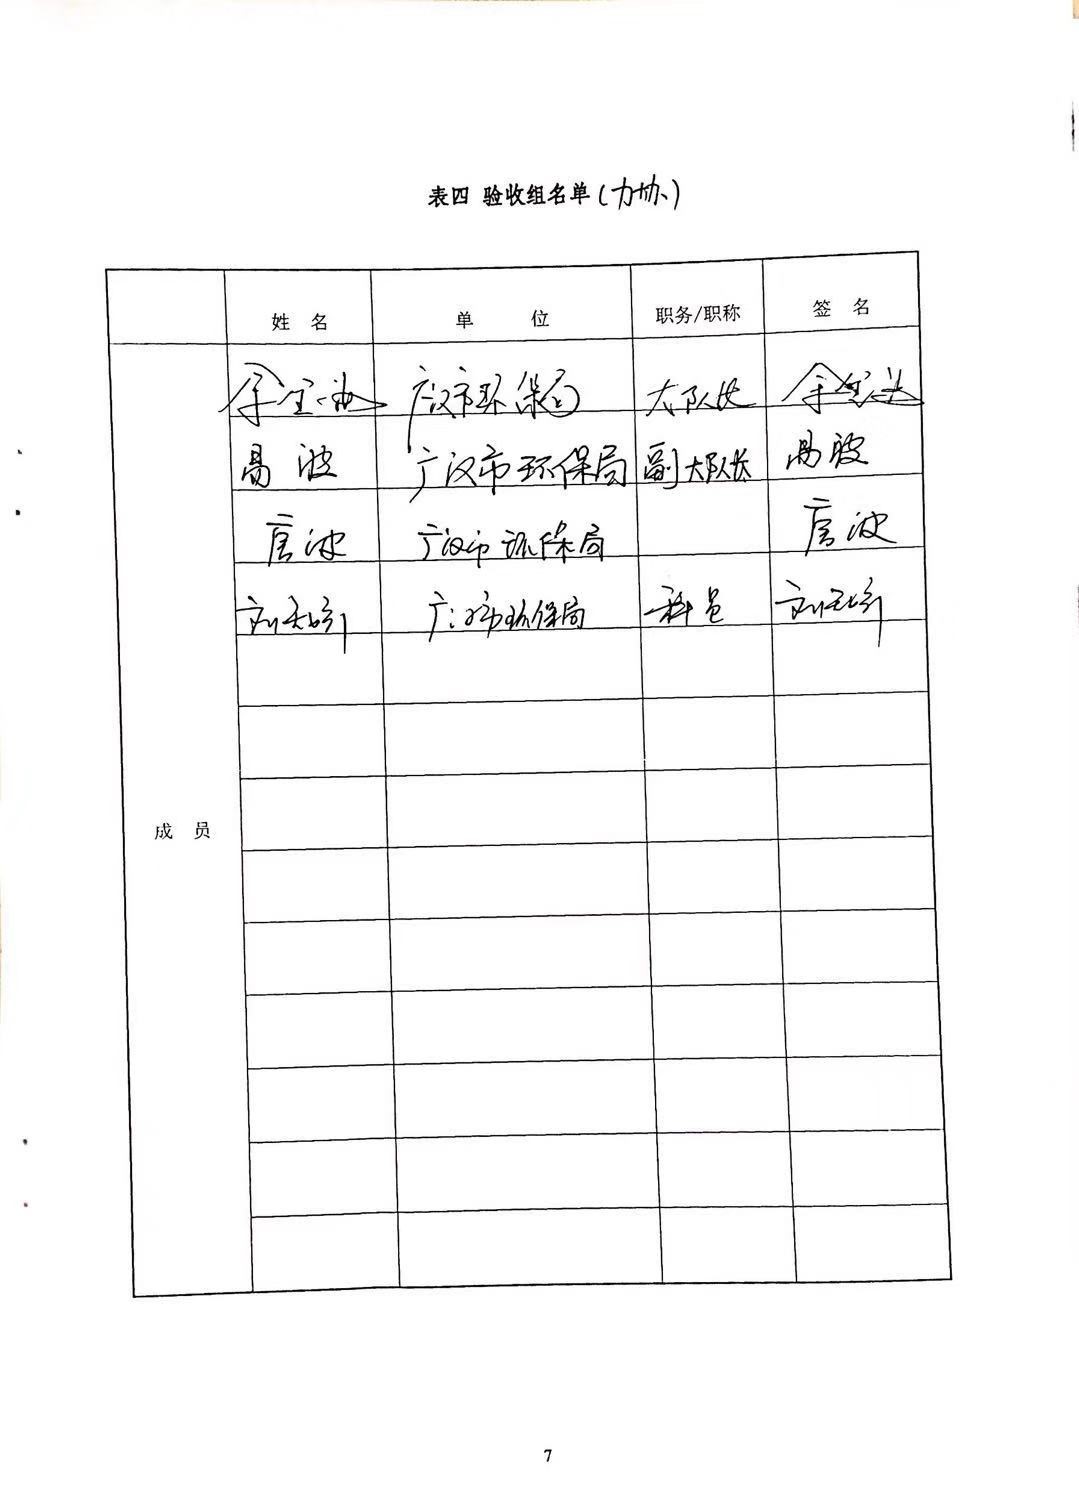 表四 验收组名单(力协)
姓 名 单 位 职务/职称 签 名
广汉市环保局 大队长
高波 广汉市环保局 副大队长 高波
唐波 广汉市环保局 唐波
广汉市环保局 科员
成 员
7